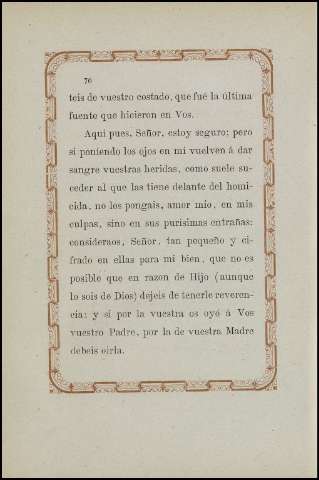 76
teis de vuestro costado, que fué la última
fuente que hicieron en Vos.
Aqui pues, Señor, estoy seguro; pero
si poniendo los ojos en mi vuelven á dar
sangre vuestras heridas, como suele su-
ceder al que las tiene delante del homi-
cida, no los pongais, amor mio, en mis
culpas, sino en sus purisimas entrañas:
consideraos, Señor, tan pequeño y ci-
frado en ellas para mi bien, que no es
posible que en razon de Hijo (aunque
lo sois de Dios) dejeis de tenerle reveren-
cia; y si por la vuestra os oyó á Vos
vuestro Padre, por la de vuestra Madre
debeis oirla.